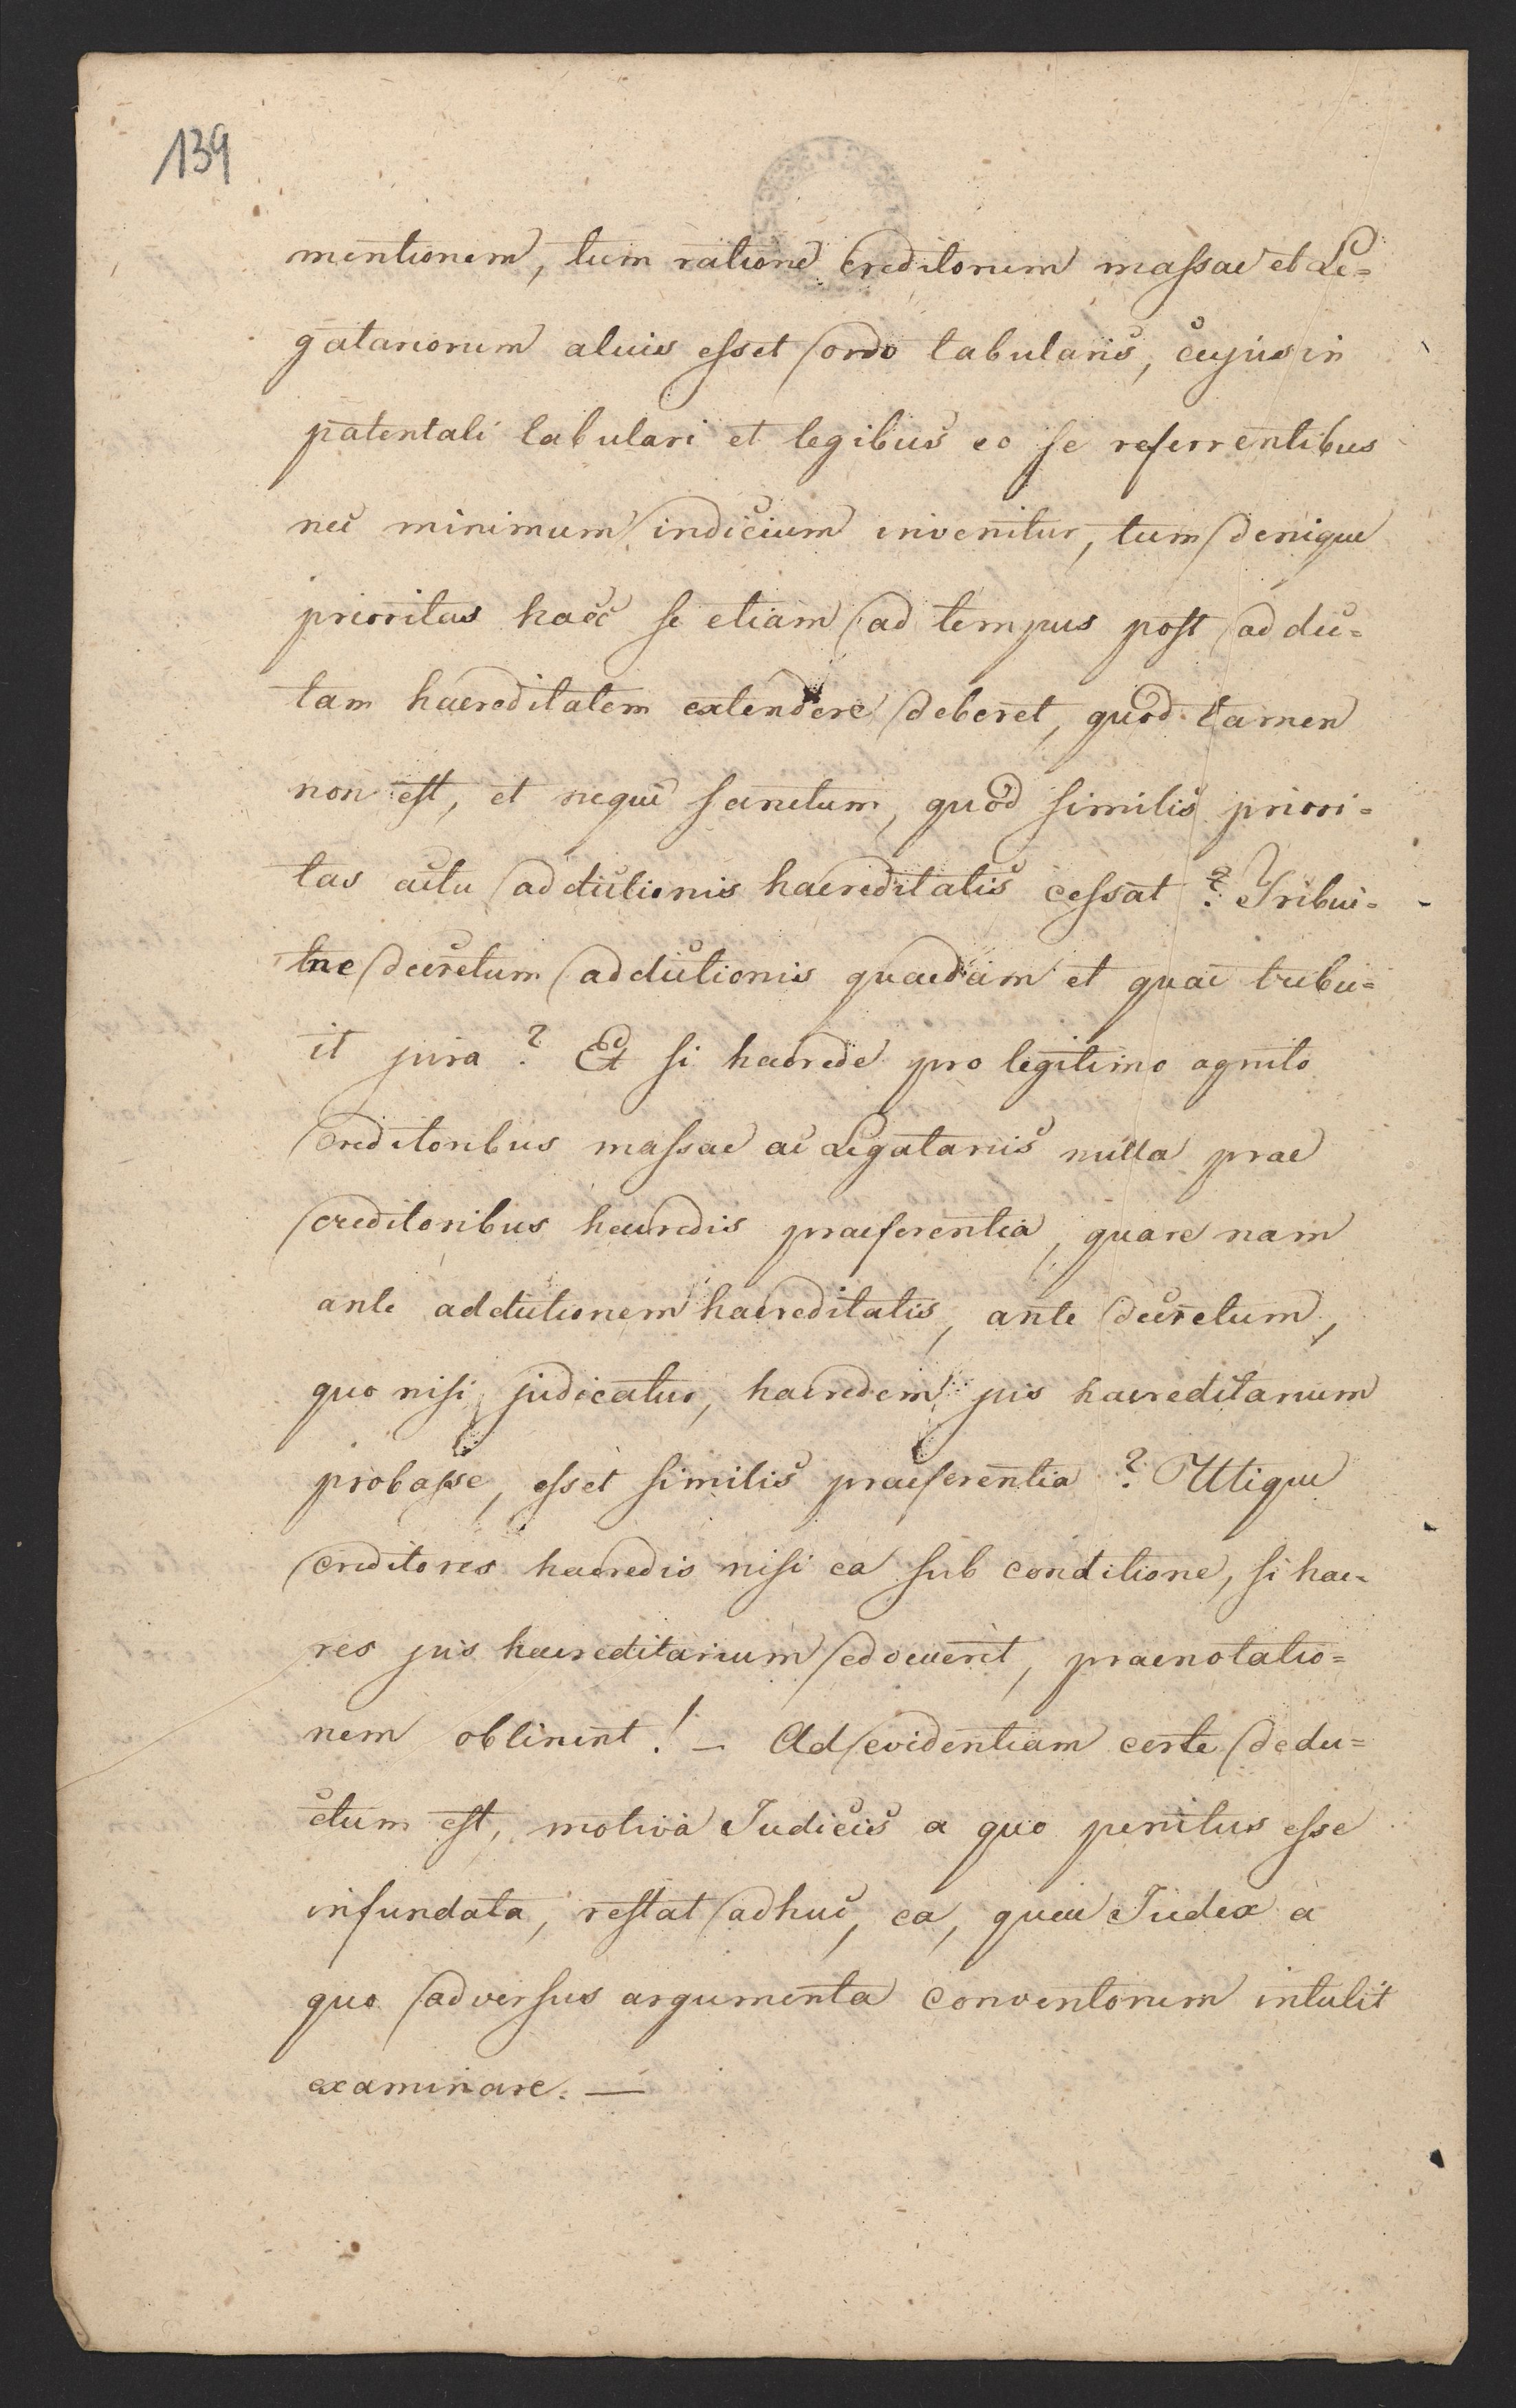 139
mentionem, tum ratione Creditorum massae et Le=
gatariorum alius esset ordo tabularis, cujus in
patentali tabulari et legibus eo se referrentibus
nec minimum indicium invenitur, tum denique
prioritas haec se etiam ad tempus post addic=
tam haereditatem extendere deberet, quod tamen
non est, et neque sanctum, quod similis priori=
tas actu addictionis haereditatis cessat? Tribui=
tne decretum addictionis quaedam et quae tribu=
it jura? Et si haerede pro legitimo agnito
Creditoribus massae ac Legatariis nulla prae
creditoribus haeredis praeferentia, quare nam
ante addictionem haereditatis, ante decretum,
quo nisi judicatur, haeredem jus haereditarium
probasse, esset similis praeferentia? Utique
creditores haeredis nisi ea sub conditione, si hae=
res jus haereditarium edocuerit, praenotatio=
nem obtinent! — Ad evidentiam certe dedu=
ctum est, motiva Judicis a quo penitus esse
infundata, restat adhuc, ea, quae Judex a
quo adversus argumenta conventorum intulit
examinare. —